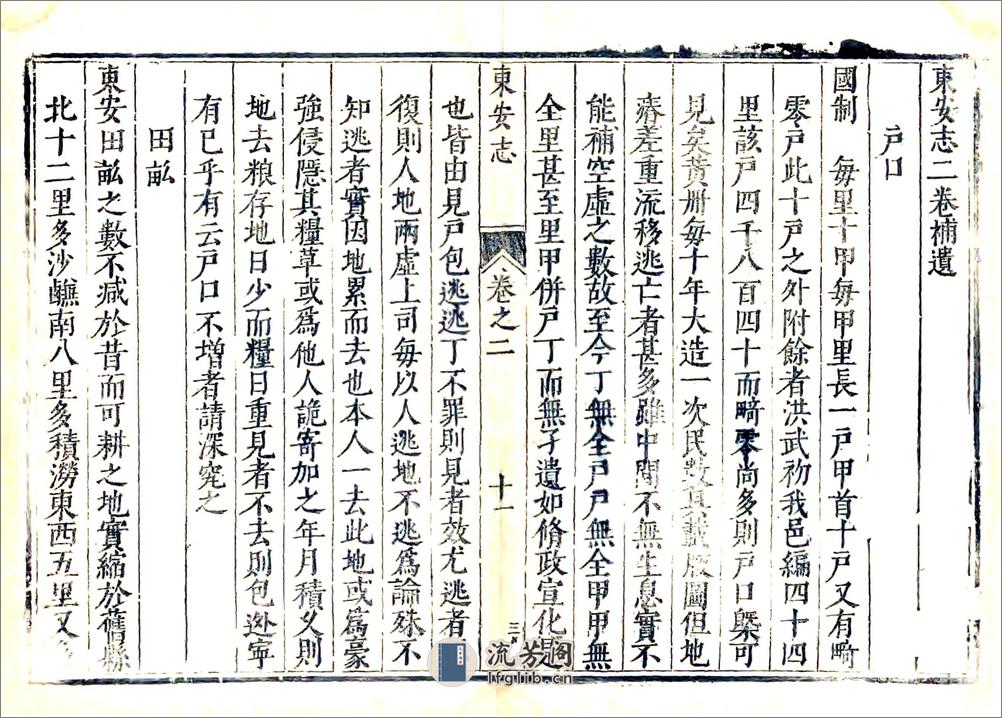 東安志二卷補遺
户口
國制　每里十甲每甲里長一戸甲首十戸又有畸
零戸此十戸之外附餘者洪武初我邑編四十四
里該戸四千八百四十而畸零尚多則戸口槩可
見矣黃册每十年大造一次民數具載版圖但地
瘠差重流移逃亡者甚多雖中間不無生息實不
能補空虛之數故至今丁無全戸戸無全甲甲無
全里甚至里甲併戸丁而無孑遺如脩政宣化
東安志
卷之二
十一
也皆由見戸包逃逃丁不罪則見者效尤逃者
復則人地兩虛上司每以人逃地不逃爲論殊不
知逃者實因地累而去也本人一去此地或爲豪
強侵隱其糧草或爲他人詭寄加之年月積乆則
地去粮存地日少而糧日重見者不去則包逊寧
有已乎有云戸口不增者請深究之
田畆
東安田畆之數不减於昔而可耕之地實縮於舊縣
北十二里多沙鹻南八里多積澇東西五里又
流芳阁
lfglib.cn